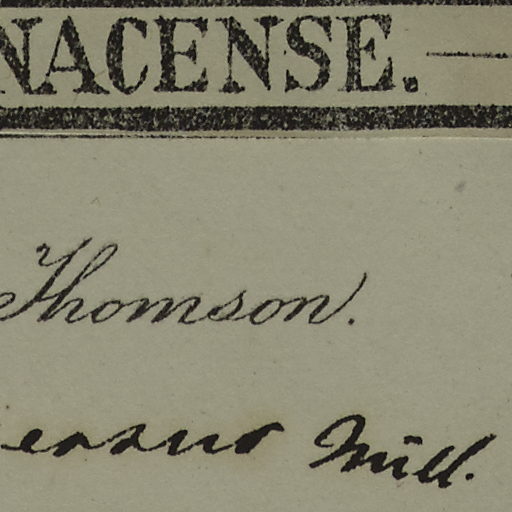 NACENSE.
Thomson.
Mill.